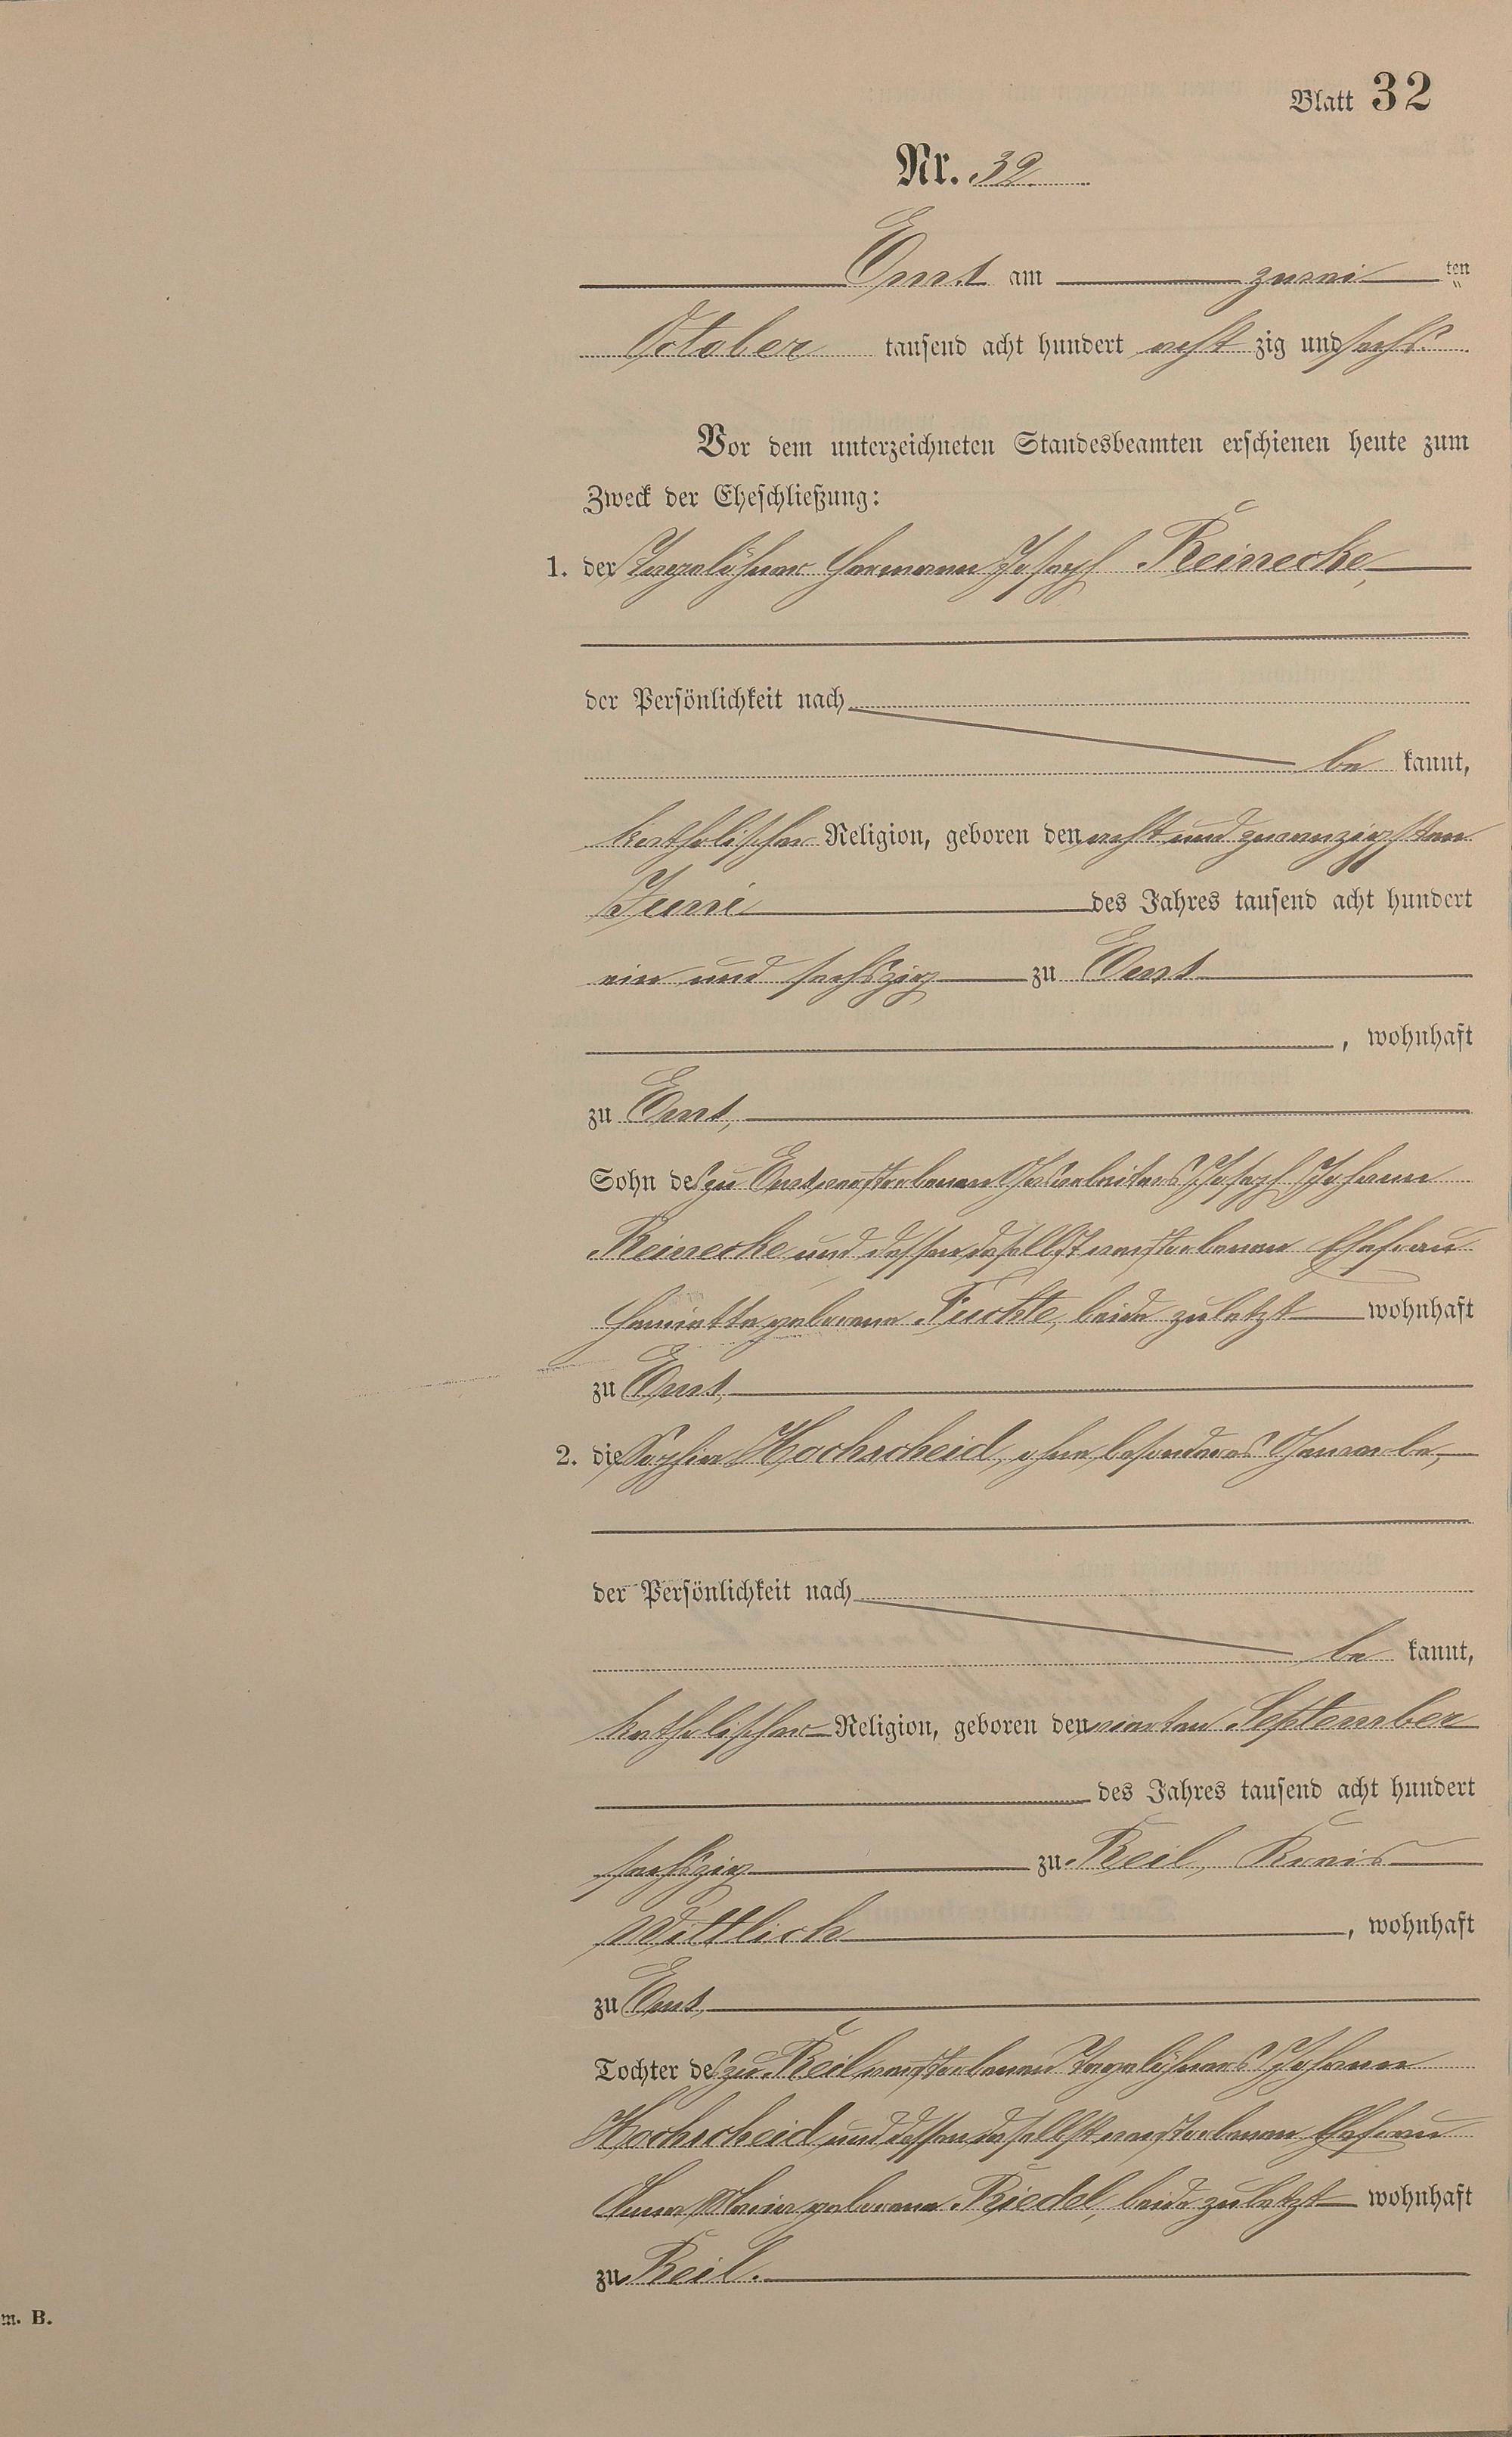 Blatt 32
Nr. 32
Ernst am zwei ten
October tausend acht hundert acht zig und sechs
Vor dem unterzeichneten Standesbeamten erschienen heute zum
Zweck der Eheschließung:
1. der Tagelöhner Hermann Joseph Reinecke,
der Persönlichkeit nach
be kannt,
katholischer Religion, geboren den acht und zwanzigsten
Juni des Jahres tausend acht hundert
ein und sechszig zu Ernst
, wohnhaft
zu Ernst,
Sohn des zu Ernst verstorbenen Joseph Johann
Reinecke und dessen daselbst verstorbenen Ehefrau
Henriette geborene Fuchte, beide zuletzt wohnhaft
zu Ernst,
2. die Sophia Hochscheid, ohne besonderes Gewerbe,
der Persönlichkeit nach
be kannt,
katholischer Religion, geboren den vierten September
des Jahres tausend acht hundert
sechszig zu Reil, Kreis
Wittlich , wohnhaft
zu Ernst,
Tochter des zu Reil verstorbenen Tagelöhners Johann
Hochscheid und dessen daselbst verstorbenen Ehefrau
Anna Maria geborene Riedel, beide zuletzt wohnhaft
zu Reil.
m. B.